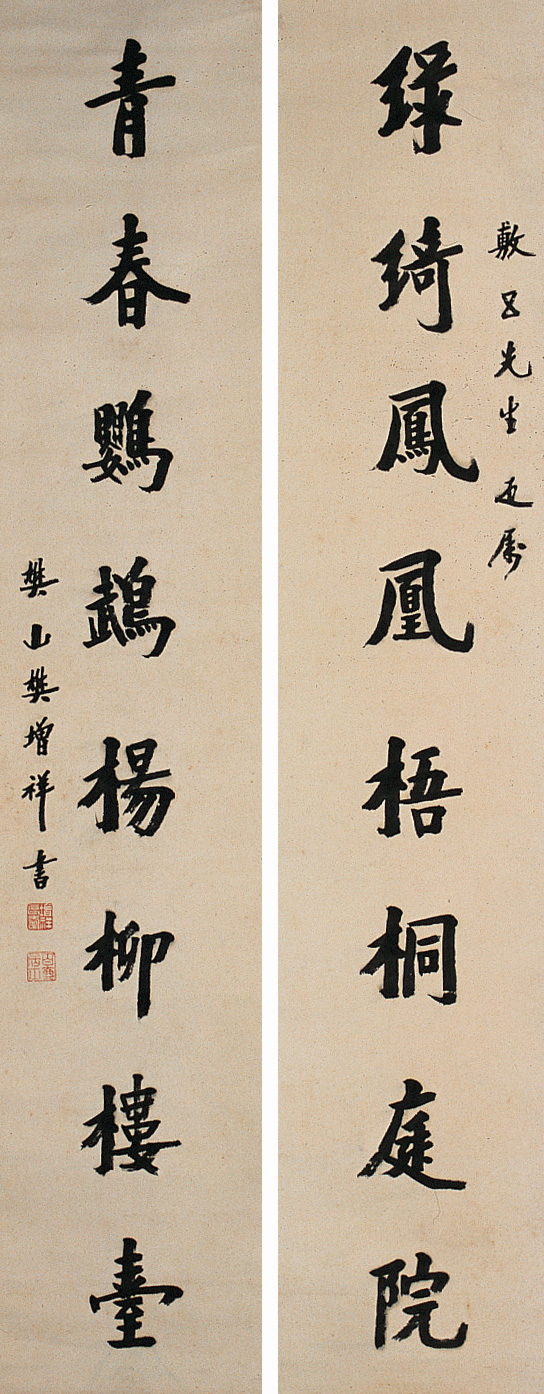 敷吕先生 正属
綠綺鳳凰梧桐庭院
青春鸚鵡楊柳樓臺
樊山樊增祥書